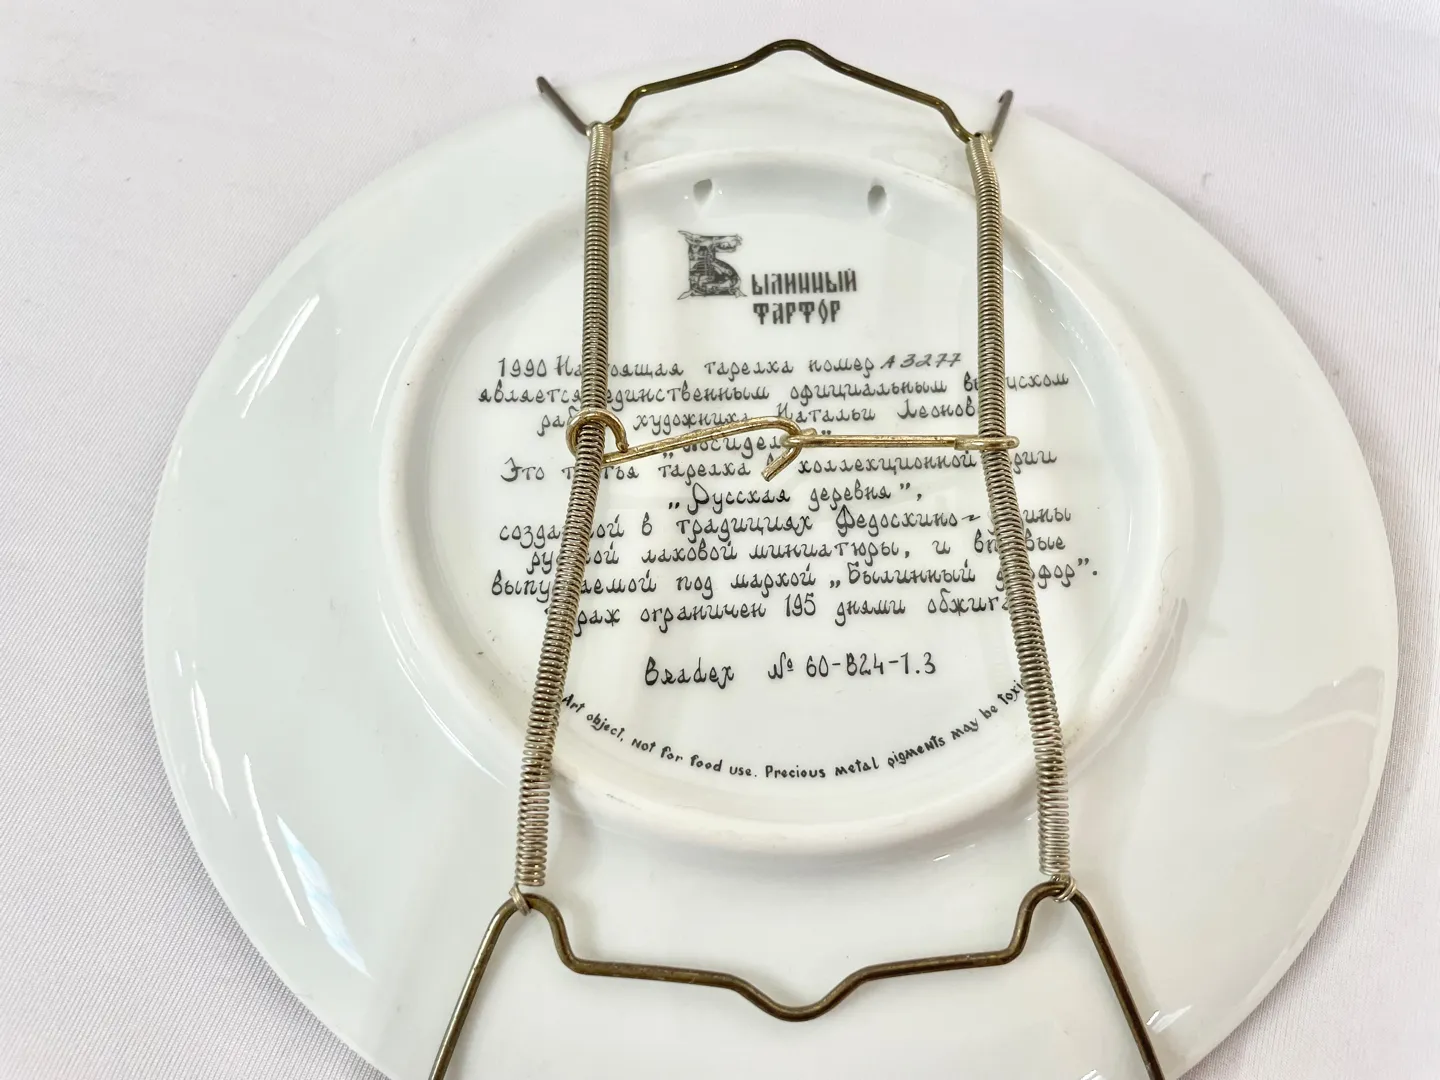 Былинный
фарфор
1990 Настоящая тарелка номер А3277
является единственным официальным выпуском
работы художника Натальи Леоновой
„Посиделки”
Это третья тарелка в коллекционной серии
„Русская деревня”,
созданной в традициях Федоскино – родины
русской лаковой миниатюры, и впервые
выпускаемой под маркой „Былинный фарфор”.
Тираж ограничен 195 днями обжига
Bradex № 60-B24-1.3
Art object, not for food use. Precious metal pigments may be toxic